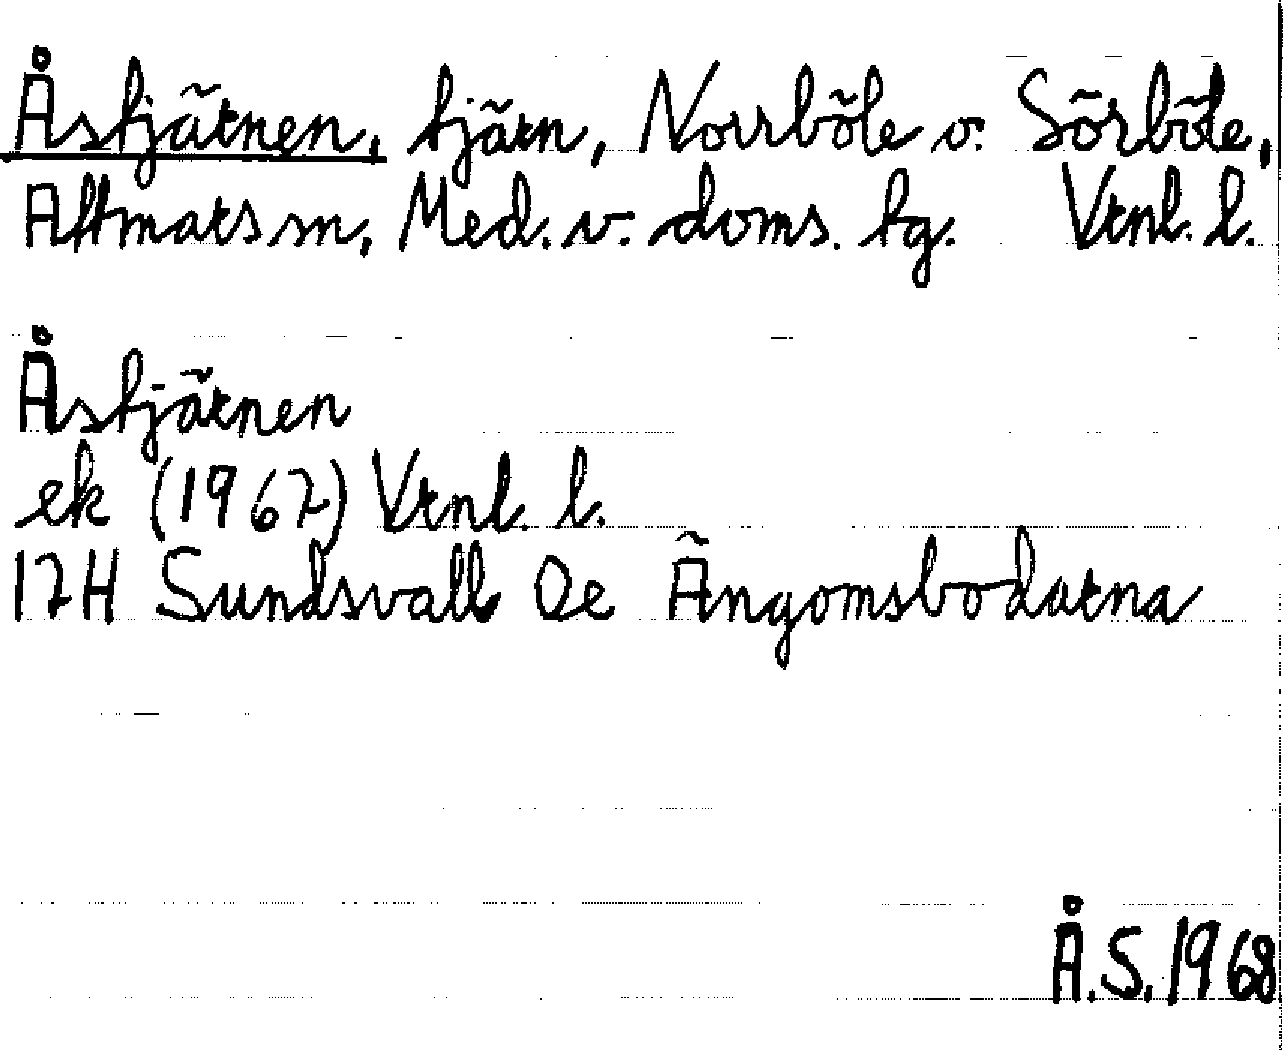 Åstjärnen, tjärn, Norrböle o. Sörböle,
Attmars sn, Med. v. doms. tg. Vtnl. l.
Åstjärnen
ek (1967) Vtnl. l.
17H Sundsvall 0e Ängomsbodarna
Å.S. 1968